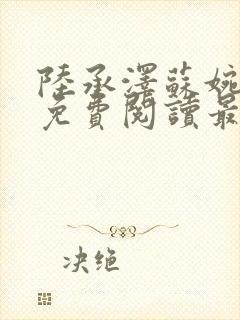 陸承澤蘇婉
免費閱讀最
决绝